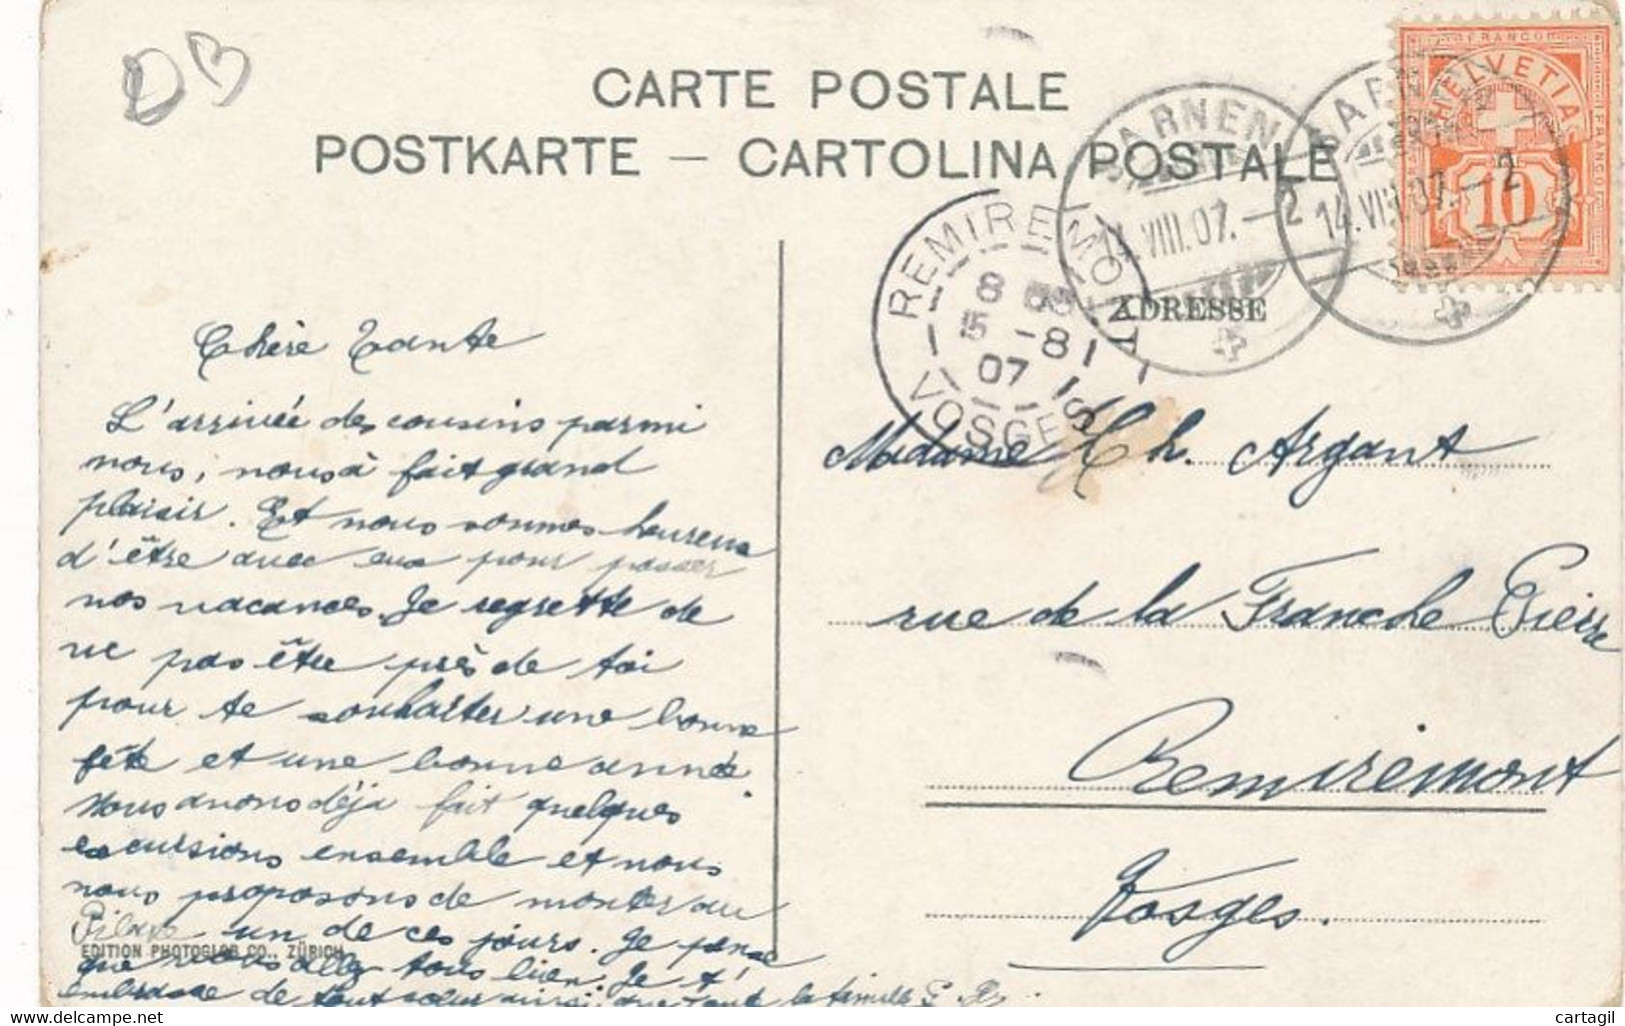 DB
CARTE POSTALE
POSTKARTE — CARTOLINA POSTALE
HELVETIA
FRANCO
10
SARNEN
14.VIII.07.—2
SARNEN
14.VIII.07.—2
REMIREMONT
8
15 -8
07
VOSGES
ADRESSE
Chère Tante
L'arrivée des cousins parmi
nous, nous à fait grand
plaisir. Et nous sommes heureux
d'être avec eux pour passer
nos vacances. Je regrette de
ne pas être près de toi
pour te souhaiter une bonne
fête et une bonne année.
Nous avons déja fait quelques
excursions ensemble et nous
nous proposons de monter au
Pilate un de ces jours. Je pense
que vous allez tous bien. Je t'
embrasse de tout coeur ainsi que toute la famille
EDITION PHOTOGLOB CO., ZÜRICH
Madame Ch. Argant
rue de la Franche Pierre
Remiremont
Vosges.
cartagil